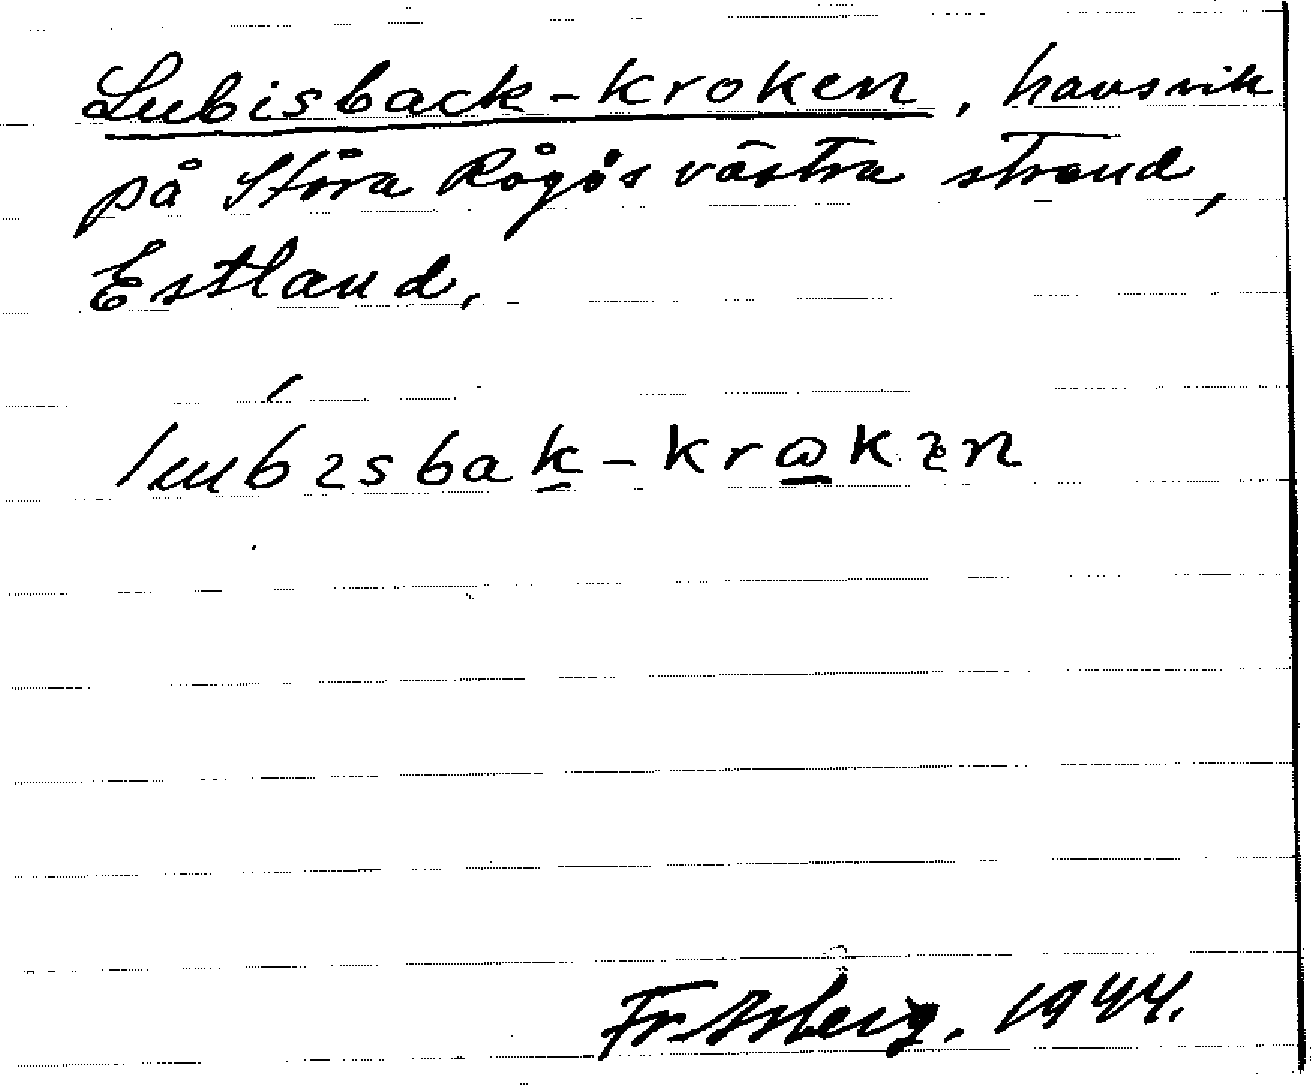 Lubisback-kroken, havsvik
på Stora Rågös västra strand,
Estland.
lubisbak-kroken
Fr. Åsberg. 1944.